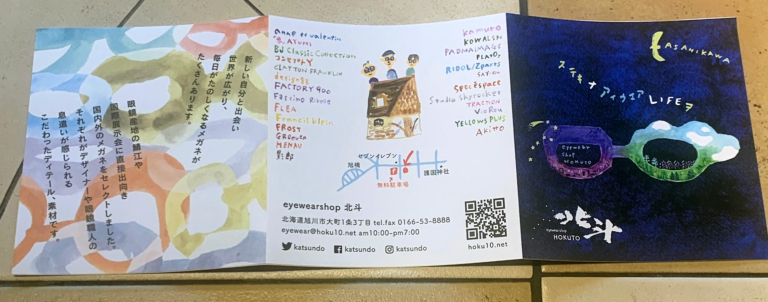 新しい自分と出会い
世界が広がり、
毎日がたのしくなるメガネが
たくさんあります。
眼鏡産地の鯖江や
国際展示会に直接出向き
国内外のメガネをセレクトしました。
それぞれがデザイナーや眼鏡職人の
息遣いが感じられる
こだわったディテール、素材です。
anne et valentin
BJ Classic Collection
CLAYTON FRANKLIN
designs
FACTORY900
FLEA
FROST
GROOVER
影郎
kamuro
KOWALSKI
PADMA IMAGE
RIDOL/2point
Spec Espace
TRACTION
YELLOWS PLUS
AKITTO
セブンイレブン
旭橋
無料駐車場
護国神社
eyewearshop 北斗
北海道旭川市大町1条3丁目 tel.fax 0166-53-8888
eyewear@hoku10.net am10:00-pm7:00
katsundo katsundo katsundo
hoku10.net
ASAHIKAWA
ステキナアイウエア LIFEヲ
eyewear
shop
HOKUTO
北斗
eyewear shop
HOKUTO